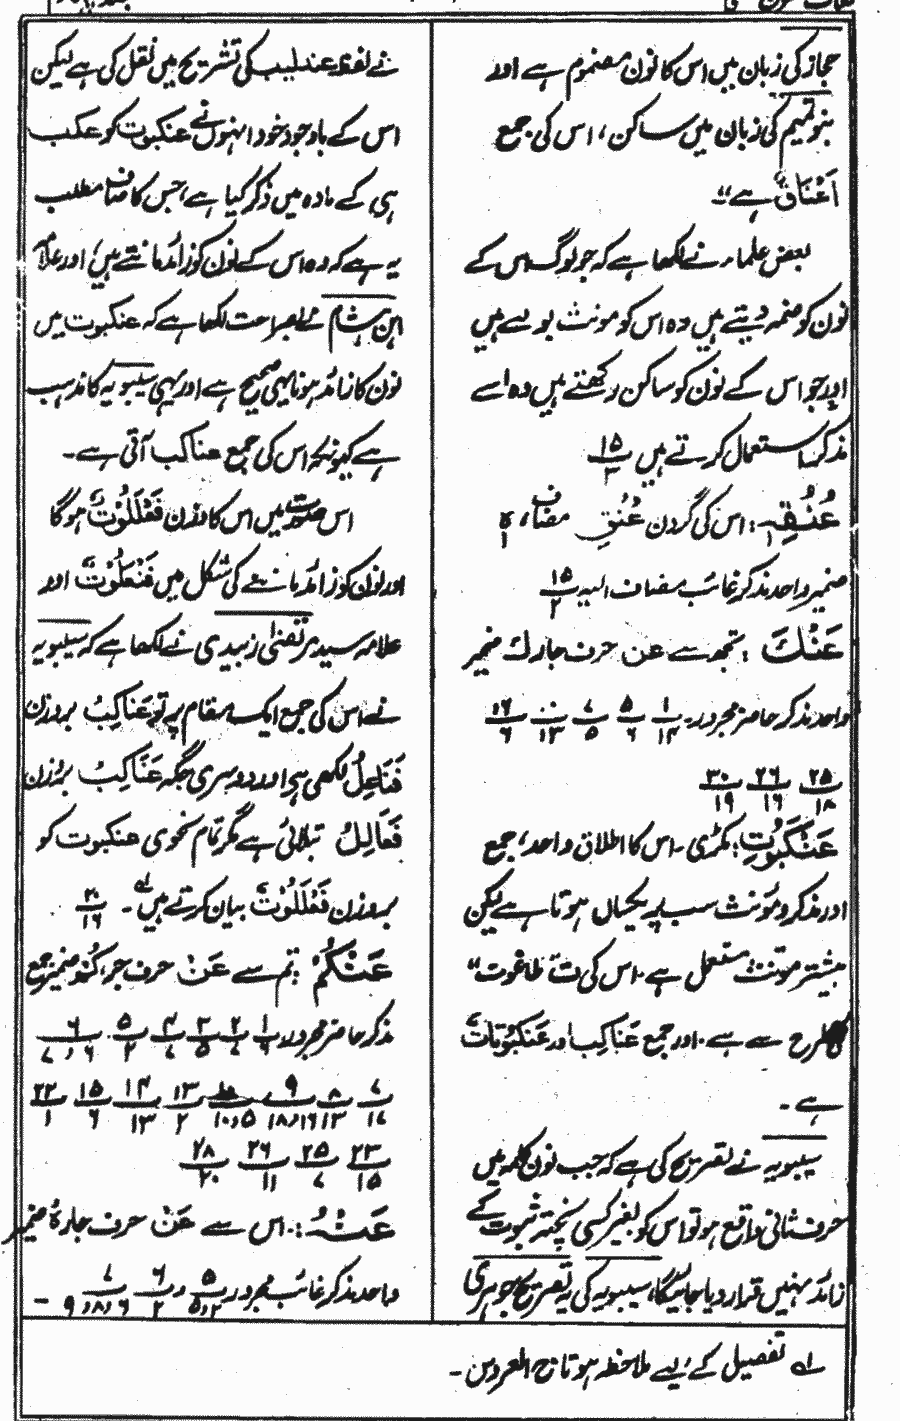 حجاز کی زبان میں اس کا نون مضموم ہے اور
بنو تمیم کی زبان میں ساکن، اس کی جمع
اَعْنَاقٌ ہے"۔
بعض علماء نے لکھا ہے کہ جو لوگ اس کے
نون کو ضمہ دیتے ہیں وہ اس کو مونث بولتے ہیں
اور جو اس کے نون کو ساکن رکھتے ہیں وہ اسے
مذکر استعمال کرتے ہیں ۱۵/۳
عُنُقِہٖ: اس کی گردن عُنُقِ مضاف، ہ
ضمیر واحد مذکر غائب مضاف الیہ ۱۵/۲
عَنْكَ: تجھ سے عن حرف جار ك ضمیر
واحد مذکر حاضر مجرور۔ ۱/۱۴ ۵/۶ ۷/۵ ۱۰/۱۳ ۱۶/۶
۲۵/۱۸ ۲۶/۱۶ ۳۰/۱۹
عَنْكَبُوْتِ: مکڑی۔ اس کا اطلاق واحد، جمع
اور مذکر و مؤنث سب پر یکساں ہوتا ہے لیکن
بیشتر مؤنث مستعمل ہے۔ اس کی تؔ طاغوت"
کی طرح سے ہے۔ اور جمع عَنَاكِب اور عَنْكَبُوْتَات
ہے۔
سیبویہ نے تصریح کی ہے کہ جب نون کلمہ میں
حرف ثانی واقع ہو تو اس کو بغیر کسی پختہ ثبوت کے
زائد نہیں قرار دیا جائیگا، سیبویہ کی یہ تصریح جوہری
نے لفظ عندلیب کی تشریح میں نقل کی ہے لیکن
اس کے باوجود خود انہوں نے عنکبوت کو عکب
ہی کے مادہ میں ذکر کیا ہے، جس کا صاف مطلب
یہ ہے کہ وہ اس کے نون کو زائد مانتے ہیں، اور علامہ
ابن ہشام نے بصراحت لکھا ہے کہ عنکبوت میں
نون کا زائد ہونا یہی صحیح ہے اور یہی سیبویہ کا مذہب
ہے کیونکہ اس کی جمع عناکب آتی ہے۔
اس صورت میں اس کا وزن فَعْلَلُوْتٌ ہو گا
اور نون کو زائد ماننے کی شکل میں فَنْعَلُوْتٌ اور
علامہ سید مرتضٰی زبیدی نے لکھا ہے کہ سیبویہ
نے اس کی جمع ایک مقام پر تو عَنَاكِبُ بروزن
فَنَاعِلُ لکھی ہے اور دوسری جگہ عَنَاكِبُ بروزن
فَعَالِلُ بتلائی ہے مگر تمام نحوی عنکبوت کو
بروزن فَعْلَلُوْتٌ بیان کرتے ہیں لہ۔ ۲۰/۱۶
عَنْكُمْ: تم سے عَنْ حرف جر، كُمْ ضمیر جمع
مذکر حاضر مجرور، ۱/۶ ۲/۷ ۳/۵ ۴/۷ ۵/۲ ۶/۷،۶
۷/۱۷ ۸/۱۳ ۹/۱۸،۱۶ ۱۰،۵ ۱۳/۲ ۱۴/۱۳ ۱۵/۶ ۲۲/۱
۲۳/۱۵ ۲۵/۷ ۲۶/۱۱ ۲۸/۲۰
عَنْہُ: اس سے عَنْ حرف جار ہُ ضمیر
واحد مذکر غائب مجرور ۵/۵،۲ و ۶/۲ ۷/۹،۸،۶ ۔
لہ تفصیل کے لیے ملاحظہ ہو تاج العروس۔